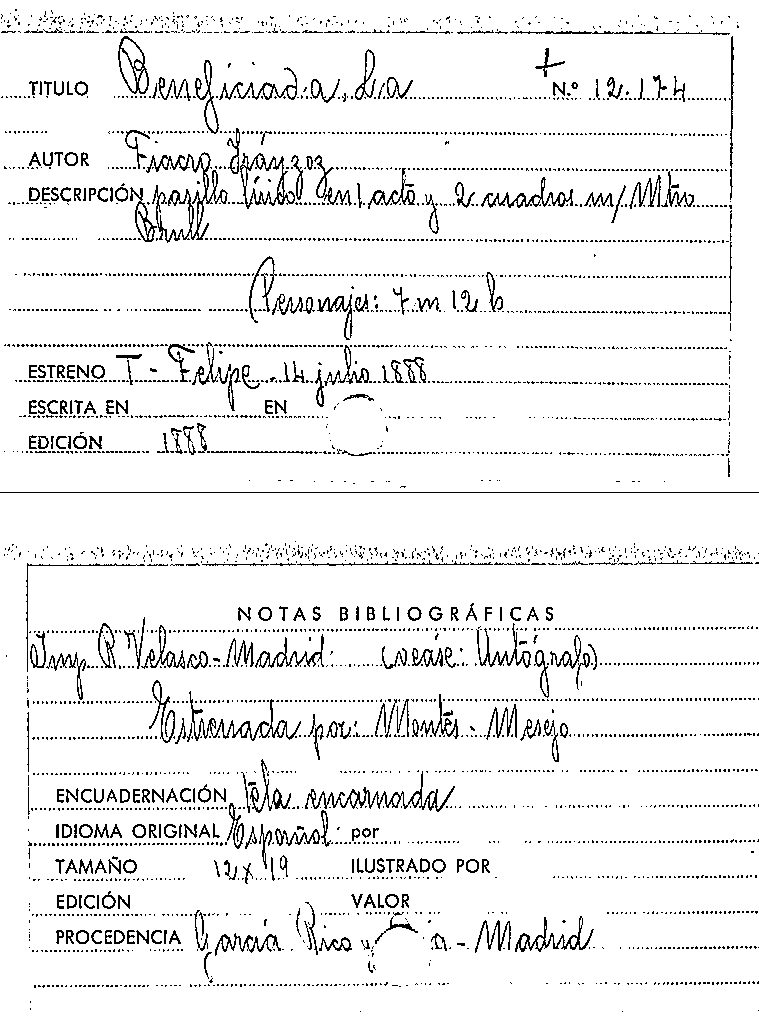 TITULO Beneficiada, La
+
N.º 12.174
AUTOR Fiacro Iráyzoz
DESCRIPCIÓN pasillo en 1 acto y 2 cuadros m/ Mtro
Brull
Personajes: 7 m 12 h
ESTRENO T - Felipe - 14 julio 1888
ESCRITA EN EN
EDICIÓN 1888
NOTAS BIBLIOGRÁFICAS
Imp R. Velasco - Madrid: (vease: Autógrafo)
Estrenada por: Montes - Mesejo
ENCUADERNACIÓN tela encarnada
IDIOMA ORIGINAL Español por
TAMAÑO 12 x 19 ILUSTRADO POR
EDICIÓN VALOR
PROCEDENCIA García Rico y - Madrid